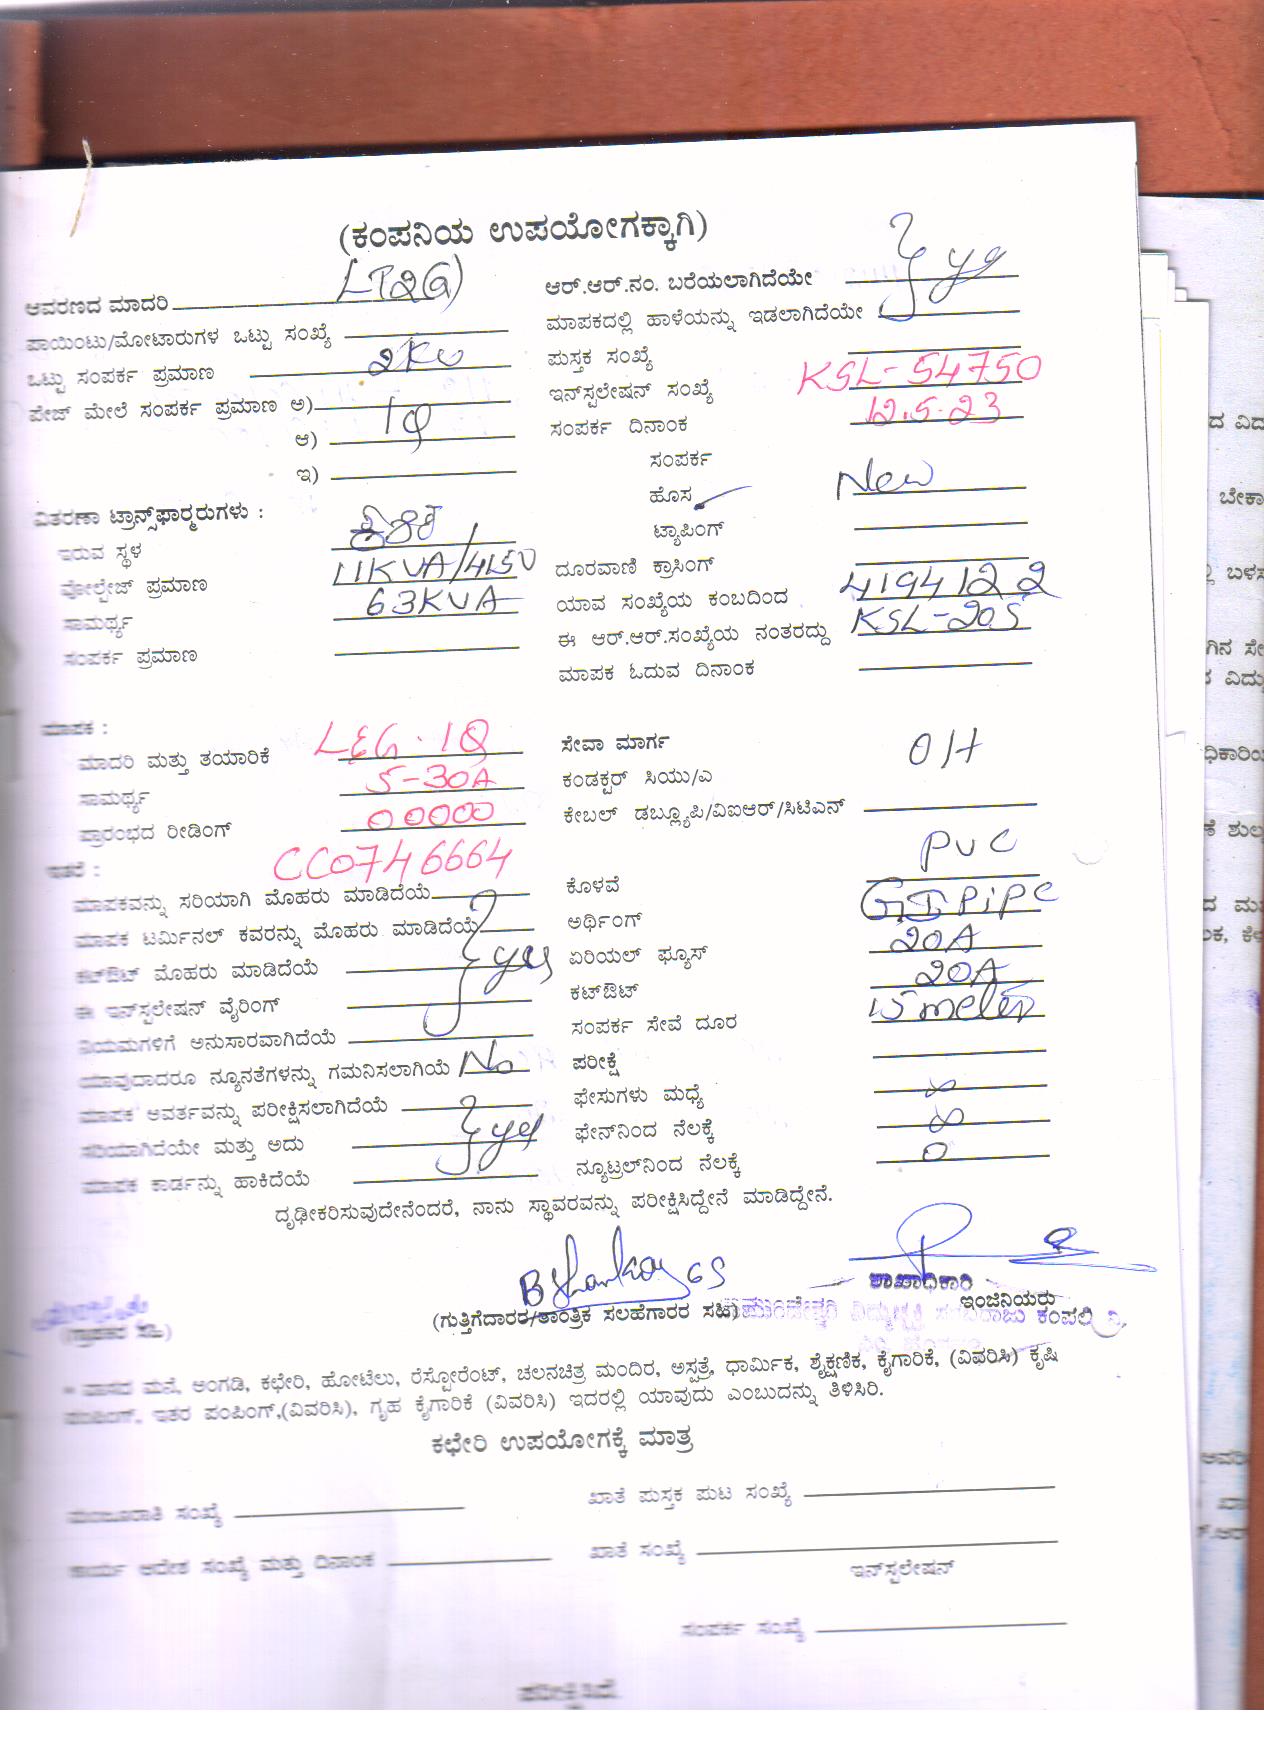 (ಕಂಪನಿಯ ಉಪಯೋಗಕ್ಕಾಗಿ)
ಆವರಣದ ಮಾದರಿ LT2(a)
ಪಾಯಿಂಟು/ಮೋಟಾರುಗಳ ಒಟ್ಟು ಸಂಖ್ಯೆ
ಒಟ್ಟು ಸಂಪರ್ಕ ಪ್ರಮಾಣ 2KW
ಪೇಜ್ ಮೇಲೆ ಸಂಪರ್ಕ ಪ್ರಮಾಣ ಅ)
ಆ) 1Φ
ಇ)
ಆರ್.ಆರ್.ನಂ. ಬರೆಯಲಾಗಿದೆಯೇ
ಮಾಪಕದಲ್ಲಿ ಹಾಳೆಯನ್ನು ಇಡಲಾಗಿದೆಯೇ } yes
ಪುಸ್ತಕ ಸಂಖ್ಯೆ
ಇನ್‌ಸ್ಟಲೇಷನ್ ಸಂಖ್ಯೆ KSL-54750
ಸಂಪರ್ಕ ದಿನಾಂಕ 12.5.23
ಸಂಪರ್ಕ
ಹೊಸ ✓ New
ಟ್ಯಾಪಿಂಗ್
ವಿತರಣಾ ಟ್ರಾನ್ಸ್‌ಫಾರ್ಮರುಗಳು :
ಇರುವ ಸ್ಥಳ
ವೋಲ್ಟೇಜ್ ಪ್ರಮಾಣ 11KVA/415V
ಸಾಮರ್ಥ್ಯ 63KVA
ಸಂಪರ್ಕ ಪ್ರಮಾಣ
ದೂರವಾಣಿ ಕ್ರಾಸಿಂಗ್
ಯಾವ ಸಂಖ್ಯೆಯ ಕಂಬದಿಂದ 4194122
ಈ ಆರ್.ಆರ್.ಸಂಖ್ಯೆಯ ನಂತರದ್ದು KSL-205
ಮಾಪಕ ಓದುವ ದಿನಾಂಕ
ಮಾಪಕ :
ಮಾದರಿ ಮತ್ತು ತಯಾರಿಕೆ L&G. 1Φ
ಸಾಮರ್ಥ್ಯ 5-30A
ಪ್ರಾರಂಭದ ರೀಡಿಂಗ್ 00000
ಇತರೆ : CC0746664
ಸೇವಾ ಮಾರ್ಗ O/H
ಕಂಡಕ್ಟರ್ ಸಿಯು/ಎ
ಕೇಬಲ್ ಡಬ್ಲ್ಯೂಪಿ/ವಿಐಆರ್/ಸಿಟಿಎನ್
ಮಾಪಕವನ್ನು ಸರಿಯಾಗಿ ಮೊಹರು ಮಾಡಿದೆಯೆ
ಮಾಪಕ ಟರ್ಮಿನಲ್ ಕವರನ್ನು ಮೊಹರು ಮಾಡಿದೆಯೆ
ಕಟ್‌ಔಟ್ ಮೊಹರು ಮಾಡಿದೆಯೆ } yes
ಈ ಇನ್‌ಸ್ಟಲೇಷನ್ ವೈರಿಂಗ್
ನಿಯಮಗಳಿಗೆ ಅನುಸಾರವಾಗಿದೆಯೆ
ಯಾವುದಾದರೂ ನ್ಯೂನತೆಗಳನ್ನು ಗಮನಿಸಲಾಗಿಯೆ No
ಮಾಪಕ ಆವರ್ತವನ್ನು ಪರೀಕ್ಷಿಸಲಾಗಿದೆಯೆ
ಸರಿಯಾಗಿದೆಯೇ ಮತ್ತು ಅದು } yes
ಮಾಪಕ ಕಾರ್ಡನ್ನು ಹಾಕಿದೆಯೆ
ಕೊಳವೆ PVC
ಅರ್ಥಿಂಗ್ GI Pipe
ಏರಿಯಲ್ ಫ್ಯೂಸ್ 20A
ಕಟ್‌ಔಟ್ 20A
ಸಂಪರ್ಕ ಸೇವೆ ದೂರ 15 meter
ಪರೀಕ್ಷೆ
ಫೇಸುಗಳು ಮಧ್ಯೆ ∞
ಫೇನ್‌ನಿಂದ ನೆಲಕ್ಕೆ ∞
ನ್ಯೂಟ್ರಲ್‌ನಿಂದ ನೆಲಕ್ಕೆ 0
ದೃಢೀಕರಿಸುವುದೇನೆಂದರೆ, ನಾನು ಸ್ಥಾವರವನ್ನು ಪರೀಕ್ಷಿಸಿದ್ದೇನೆ ಮಾಡಿದ್ದೇನೆ.
ಶಾಖಾಧಿಕಾರಿ
ಇಂಜಿನಿಯರು
(ಗುತ್ತಿಗೆದಾರರ/ತಾಂತ್ರಿಕ ಸಲಹೆಗಾರರ ಸಹಿ)
(ಗ್ರಾಹಕರ ಸಹಿ)
* ವಾಸದ ಮನೆ, ಅಂಗಡಿ, ಕಛೇರಿ, ಹೋಟೆಲು, ರೆಸ್ಟೋರೆಂಟ್, ಚಲನಚಿತ್ರ ಮಂದಿರ, ಅಸ್ಪತ್ರೆ, ಧಾರ್ಮಿಕ, ಶೈಕ್ಷಣಿಕ, ಕೈಗಾರಿಕೆ, (ವಿವರಿಸಿ) ಕೃಷಿ
ಪಂಪಿಂಗ್, ಇತರ ಪಂಪಿಂಗ್,(ವಿವರಿಸಿ), ಗೃಹ ಕೈಗಾರಿಕೆ (ವಿವರಿಸಿ) ಇದರಲ್ಲಿ ಯಾವುದು ಎಂಬುದನ್ನು ತಿಳಿಸಿರಿ.
ಕಛೇರಿ ಉಪಯೋಗಕ್ಕೆ ಮಾತ್ರ
ಮಂಜೂರಾತಿ ಸಂಖ್ಯೆ
ಖಾತೆ ಪುಸ್ತಕ ಪುಟ ಸಂಖ್ಯೆ
ಕಾರ್ಯ ಆದೇಶ ಸಂಖ್ಯೆ ಮತ್ತು ದಿನಾಂಕ
ಖಾತೆ ಸಂಖ್ಯೆ
ಇನ್‌ಸ್ಟಲೇಷನ್
ಸಂಪರ್ಕ ಸಂಖ್ಯೆ
ಪರೀಕ್ಷಿಸಿದೆ.